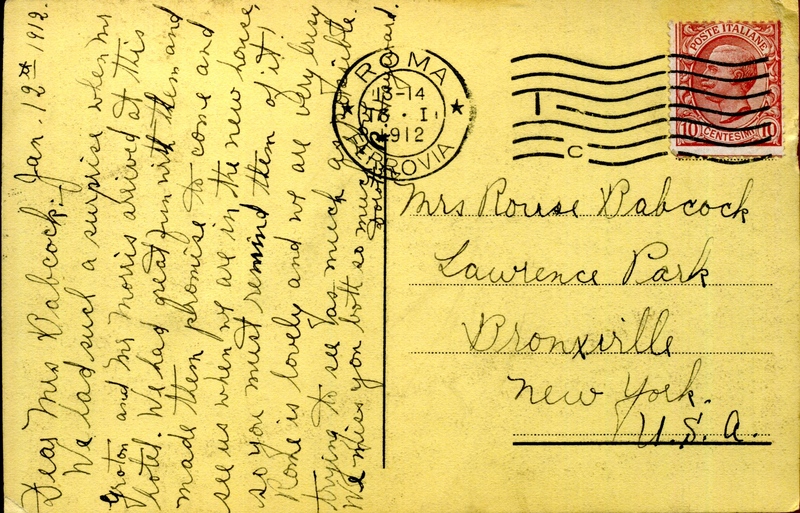 Jan. 12th 1912.
Dear Mrs Babcock:-
We had such a surprise when Mr
Groton and Mr Morris arrived at this
hotel. We had great fun with them and
made them promise to come and
see us when we are in the new house,
so you must remind them of it!
Rome is lovely and we are very busy
trying to see as much as possible.
We miss you both so much
ROMA
-14
I
1912
FERROVIA
1
C
POSTE ITALIANE
10 CENTESIMI 10
Mrs Rouse Babcock
Lawrence Park
Bronxville
New York.
U.S.A.